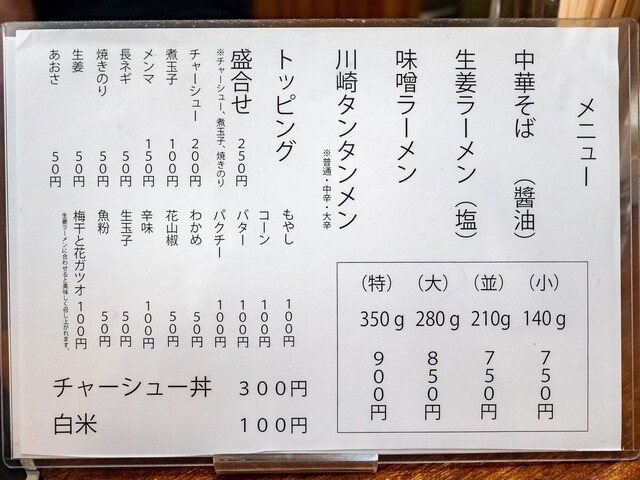 メニュー
中華そば （醬油）
生姜ラーメン（塩）
味噌ラーメン
川崎タンタンメン
※普通・中辛・大辛
（小） 140g 750円
（並） 210g 750円
（大） 280g 850円
（特） 350g 900円
トッピング
盛合せ 250円
※チャーシュー、煮玉子、焼きのり
チャーシュー 200円
煮玉子 100円
メンマ 150円
長ネギ 50円
焼きのり 50円
生姜 50円
あおさ 50円
もやし 100円
コーン 100円
バター 100円
パクチー 100円
わかめ 50円
花山椒 50円
辛味 100円
生玉子 50円
魚粉 50円
梅干と花ガツオ 100円
生姜ラーメンに合わせると美味しく召し上がれます。
チャーシュー丼 300円
白米 100円